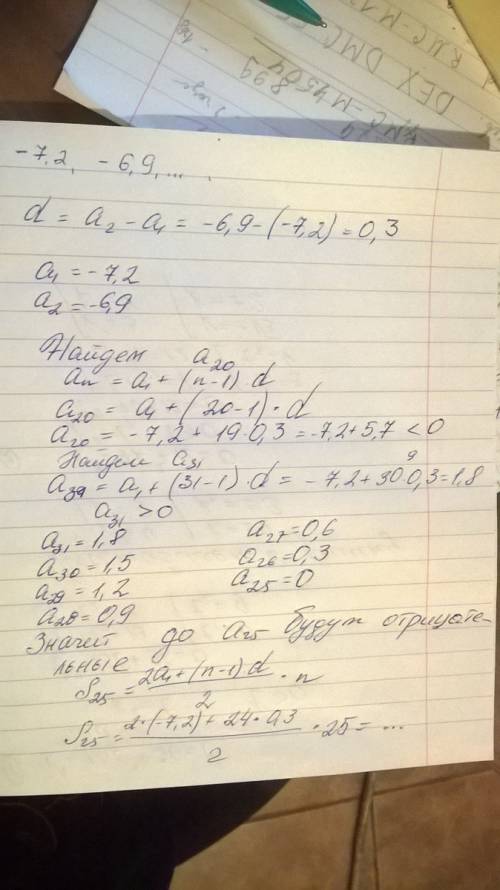 DEX DMC
-7,2, -6,9, ...
d = a₂ - a₁ = -6,9 - (-7,2) = 0,3
a₁ = -7,2
a₂ = -6,9
Найдем a₂₀
aₙ = a₁ + (n-1)·d
a₂₀ = a₁ + (20-1)·d
a₂₀ = -7,2 + 19·0,3 = -7,2 + 5,7 < 0
Найдем a₃₁
a₃₉ = a₁ + (31-1)·d = -7,2 + 30·0,3 = 1,8
9
a₃₁ > 0
a₃₁ = 1,8 a₂₇ = 0,6
a₃₀ = 1,5 a₂₆ = 0,3
a₂₉ = 1,2 a₂₅ = 0
a₂₈ = 0,9
Значит до a₂₅ будут отрицате-
льные
S₂₅ = (2a₁ + (n-1)·d)/2 · n
S₂₅ = (2·(-7,2) + 24·0,3)/2 · 25 = ...